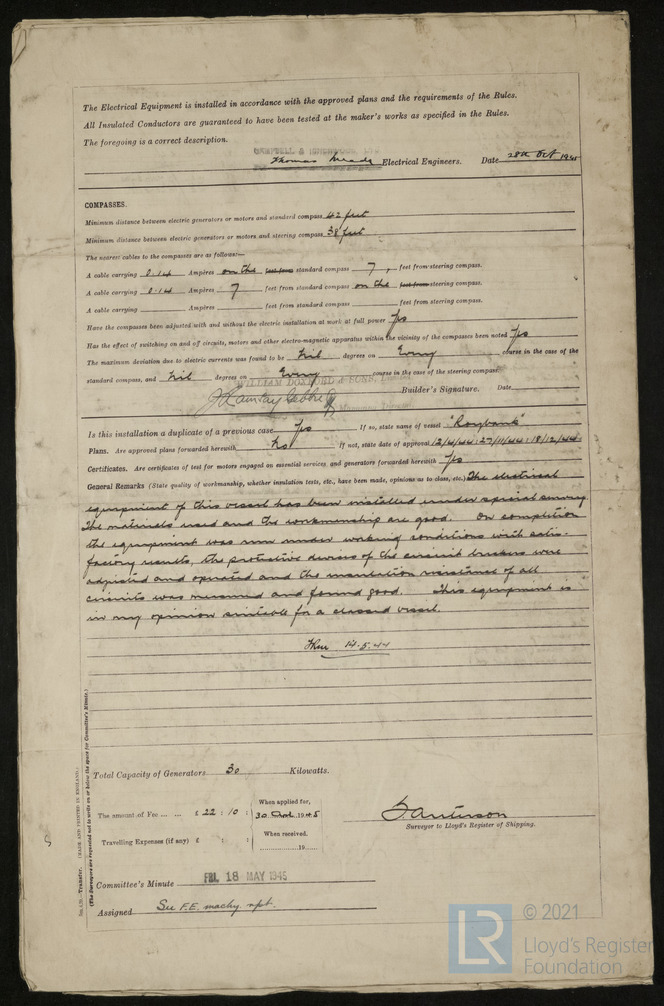 The Electrical Equipment is installed in accordance with the approved plans and the requirements of the Rules.
All Insulated Conductors are guaranteed to have been tested at the maker's works as specified in the Rules.
The foregoing is a correct description.
Thomas Electrical Engineers. Date 28th Oct 194
COMPASSES.
Minimum distance between electric generators or motors and standard compass 42 feet
Minimum distance between electric generators or motors and steering compass 38 feet
The nearest cables to the compasses are as follows:—
A cable carrying 0.14 Ampères on the feet from standard compass 7 feet from steering compass.
A cable carrying 0.14 Ampères 7 feet from standard compass on the feet from steering compass.
A cable carrying Ampères feet from standard compass feet from steering compass.
Have the compasses been adjusted with and without the electric installation at work at full power Yes
Has the effect of switching on and off circuits, motors and other electro-magnetic apparatus within the vicinity of the compasses been noted Yes
The maximum deviation due to electric currents was found to be Nil degrees on Every course in the case of the
standard compass, and Nil degrees on Every course in the case of the steering compass.
WILLIAM DOXFORD & SONS, Limited
Builder's Signature. Date
Is this installation a duplicate of a previous case Yes If so, state name of vessel "Roybank"
Plans. Are approved plans forwarded herewith No If not, state date of approval 12/4/44 : 27/11/44 : 18/12/44
Certificates. Are certificates of test for motors engaged on essential services and generators forwarded herewith Yes
General Remarks (State quality of workmanship, whether insulation tests, etc., have been made, opinions as to class, etc.) The electrical
equipment of this vessel has been installed under special survey
The materials used and the workmanship are good. On completion
the equipment was run under working conditions with satis-
factory results, the protective devices of the circuit breakers were
adjusted and operated and the insulation resistance of all
circuits was measured and found good. This equipment is
in my opinion suitable for a classed vessel.
14.5.44
Total Capacity of Generators 30 Kilowatts.
The amount of Fee ... ... £ 22 : 10 : When applied for, 30 1945
Travelling Expenses (if any) £ : : When received, 19
Surveyor to Lloyd's Register of Shipping.
Committee's Minute FRI. 18 MAY 1945
Assigned See F.E. machy. rpt.
5m.4.39.—Transfer. (MADE AND PRINTED IN ENGLAND.)
(The Surveyors are requested not to write on or below the space for Committee's Minute.)
LR
© 2021
Lloyd's Register
Foundation